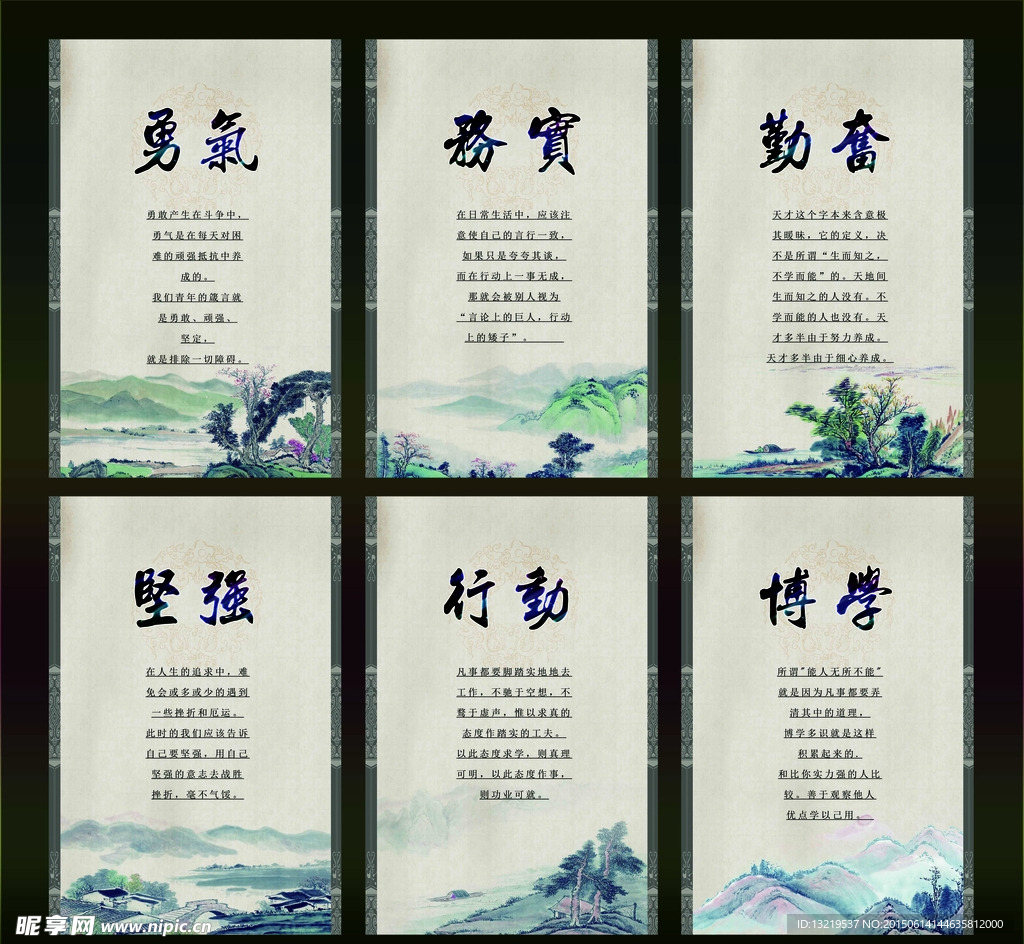 勇氣
勇敢产生在斗争中，
勇气是在每天对困
难的顽强抵抗中养
成的。
我们青年的箴言就
是勇敢、顽强、
坚定，
就是排除一切障碍。
務實
在日常生活中，应该注
意使自己的言行一致，
如果只是夸夸其谈，
而在行动上一事无成，
那就会被别人视为
“言论上的巨人，行动
上的矮子”。
勤奮
天才这个字本来含意极
其暖昧，它的定义，决
不是所谓“生而知之，
不学而能”的。天地间
生而知之的人没有。不
学而能的人也没有。天
才多半由于努力养成。
天才多半由于细心养成。
堅强
在人生的追求中，难
免会或多或少的遇到
一些挫折和厄运。
此时的我们应该告诉
自己要坚强，用自己
坚强的意志去战胜
挫折，毫不气馁。
行動
凡事都要脚踏实地地去
工作，不驰于空想，不
骛于虚声，惟以求真的
态度作踏实的工夫。
以此态度求学，则真理
可明，以此态度作事，
则功业可就。
博學
所谓"能人无所不能"
就是因为凡事都要弄
清其中的道理，
博学多识就是这样
积累起来的.
和比你实力强的人比
较。善于观察他人
优点学以己用。
昵享网 www.nipic.cn
ID:13219537 NO:20150614144635812000